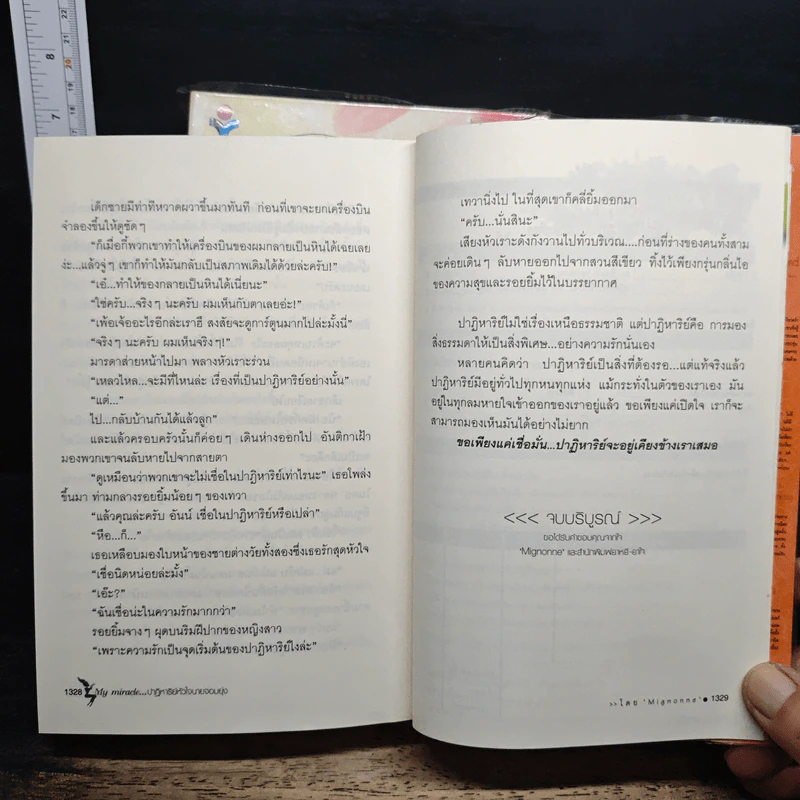 เด็กชายมีท่าทีหวาดผวาขึ้นมาทันที ก่อนที่เขาจะยกเครื่องบิน
จำลองขึ้นให้ดูชัดๆ
“ก็เมื่อกี้พวกเขาทำให้เครื่องบินของผมกลายเป็นหินได้เฉยเลย
ง่ะ...แล้วจู่ๆ เขาก็ทำให้มันกลับเป็นสภาพเดิมได้ด้วยล่ะครับ!”
“เอ๋...ทำให้ของกลายเป็นหินได้เนี่ยนะ”
“ใช่ครับ...จริงๆ นะครับ ผมเห็นกับตาเลยอ่ะ!”
“เพ้อเจ้ออะไรอีกล่ะเราฮึ สงสัยจะดูการ์ตูนมากไปล่ะมั้งนี่”
“จริงๆ นะครับ ผมเห็นจริงๆ!”
มารดาส่ายหน้าไปมา พลางหัวเราะร่วน
“เหลวไหล...จะมีที่ไหนล่ะ เรื่องที่เป็นปาฏิหาริย์อย่างนั้น”
“แต่...”
ไป...กลับบ้านกันได้แล้วลูก”
และแล้วครอบครัวนั้นก็ค่อยๆ เดินห่างออกไป อันติกาเฝ้า
มองพวกเขาจนลับหายไปจากสายตา
“ดูเหมือนว่าพวกเขาจะไม่เชื่อในปาฏิหาริย์เท่าไรนะ” เธอโพล่ง
ขึ้นมา ท่ามกลางรอยยิ้มน้อยๆ ของเทวา
“แล้วคุณล่ะครับ อันน์ เชื่อในปาฏิหาริย์หรือเปล่า”
“หือ...ก็...”
เธอเหลือบมองใบหน้าของชายต่างวัยทั้งสองซึ่งเธอรักสุดหัวใจ
“เชื่อนิดหน่อยล่ะมั้ง”
“เอ๊ะ?”
“ฉันเชื่อน่ะในความรักมากกว่า”
รอยยิ้มจางๆ ผุดบนริมฝีปากของหญิงสาว
“เพราะความรักเป็นจุดเริ่มต้นของปาฏิหาริย์ไงล่ะ”
1328 My miracle...ปาฏิหาริย์หัวใจนายจอมยุ่ง
เทวานิ่งไป ในที่สุดเขาก็คลี่ยิ้มออกมา
“ครับ...นั่นสินะ”
เสียงหัวเราะดังกังวานไปทั่วบริเวณ....ก่อนที่ร่างของคนทั้งสาม
จะค่อยเดินๆ ลับหายออกไปจากสวนสีเขียว ทิ้งไว้เพียงกรุ่นกลิ่นไอ
ของความสุขและรอยยิ้มไว้ในบรรยากาศ
ปาฏิหาริย์ไม่ใช่เรื่องเหนือธรรมชาติ แต่ปาฏิหาริย์คือ การมอง
สิ่งธรรมดาให้เป็นสิ่งพิเศษ...อย่างความรักนั่นเอง
หลายคนคิดว่า ปาฏิหาริย์เป็นสิ่งที่ต้องรอ...แต่แท้จริงแล้ว
ปาฏิหาริย์มีอยู่ทั่วไปทุกหนทุกแห่ง แม้กระทั่งในตัวของเราเอง มัน
อยู่ในทุกลมหายใจเข้าออกของเราอยู่แล้ว ขอเพียงแค่เปิดใจ เราก็จะ
สามารถมองเห็นมันได้อย่างไม่ยาก
ขอเพียงแค่เชื่อมั่น...ปาฏิหาริย์จะอยู่เคียงข้างเราเสมอ
<<< จบบริบูรณ์ >>>
ขอได้รับคำขอบคุณจากใจ
‘Mignonne’ และสำนักพิมพ์ยาหยี-ยาใจ
>>โดย ‘Mignonne’● 1329